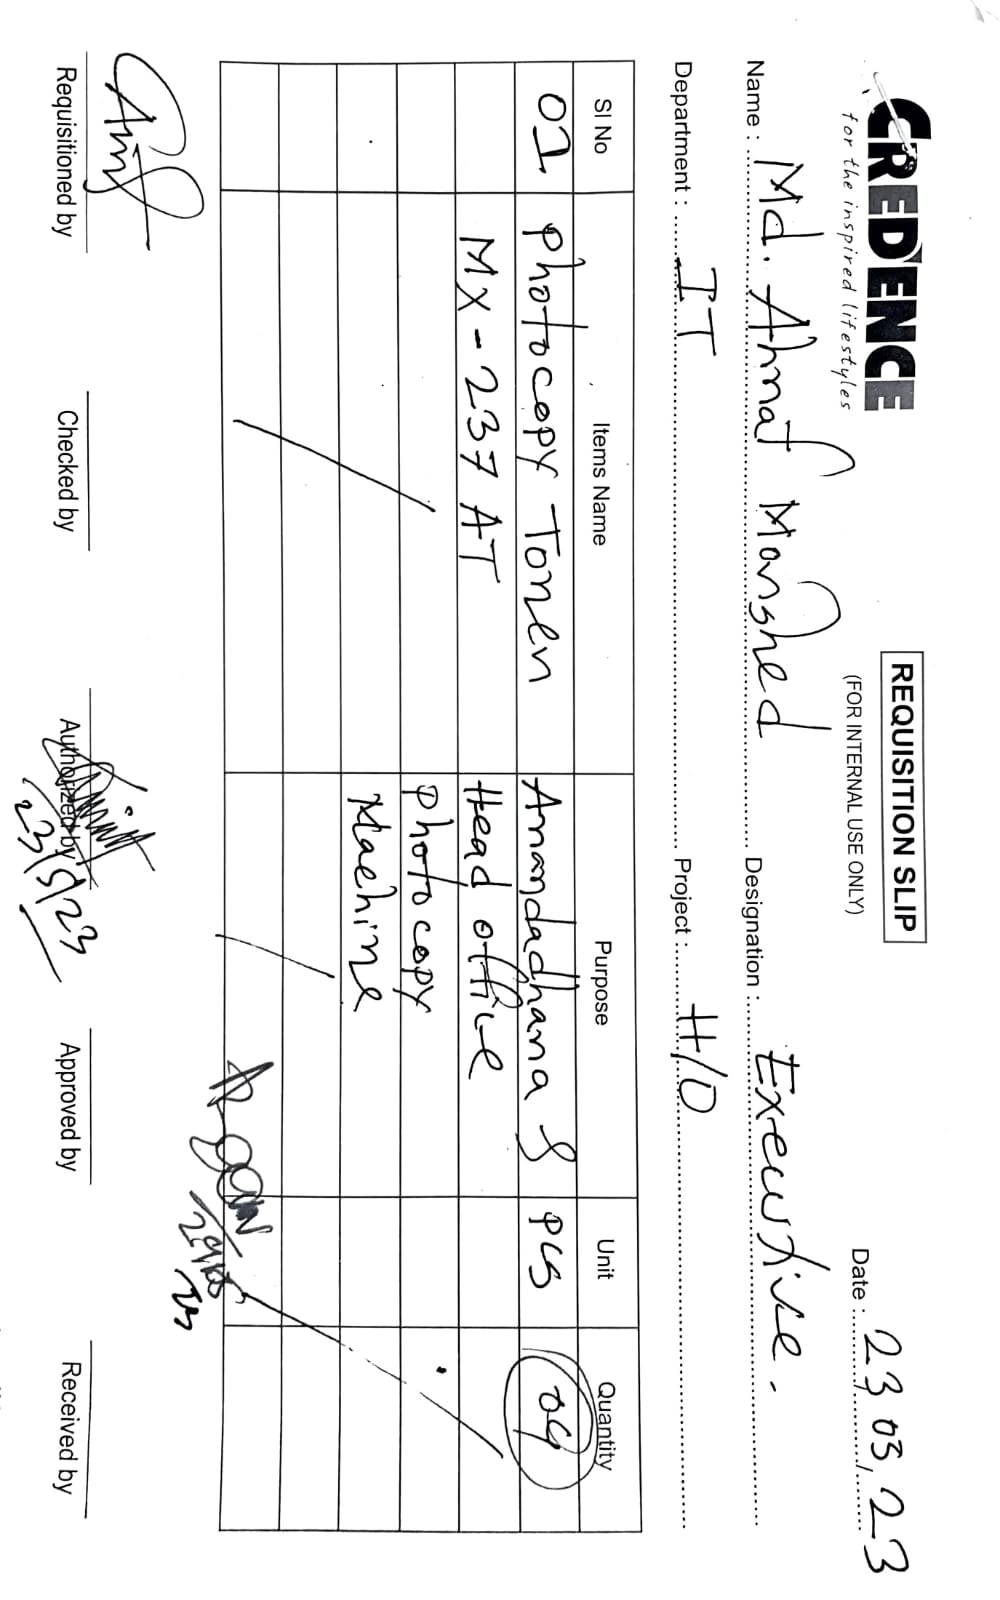 CREDENCE
for the inspired lifestyles
REQUISITION SLIP
(FOR INTERNAL USE ONLY)
Date : 23 03, 23
Name : Md. Ahmat Morshed Designation : Executive.
Department : IT Project : H/O
Sl No Items Name Purpose Unit Quantity
01 Photocopy Toner Anandadhara & PCS 04
MX-237 AT Head office
Photocopy
Machine
Requisitioned by Checked by Authorized by Approved by Received by
23/3/23